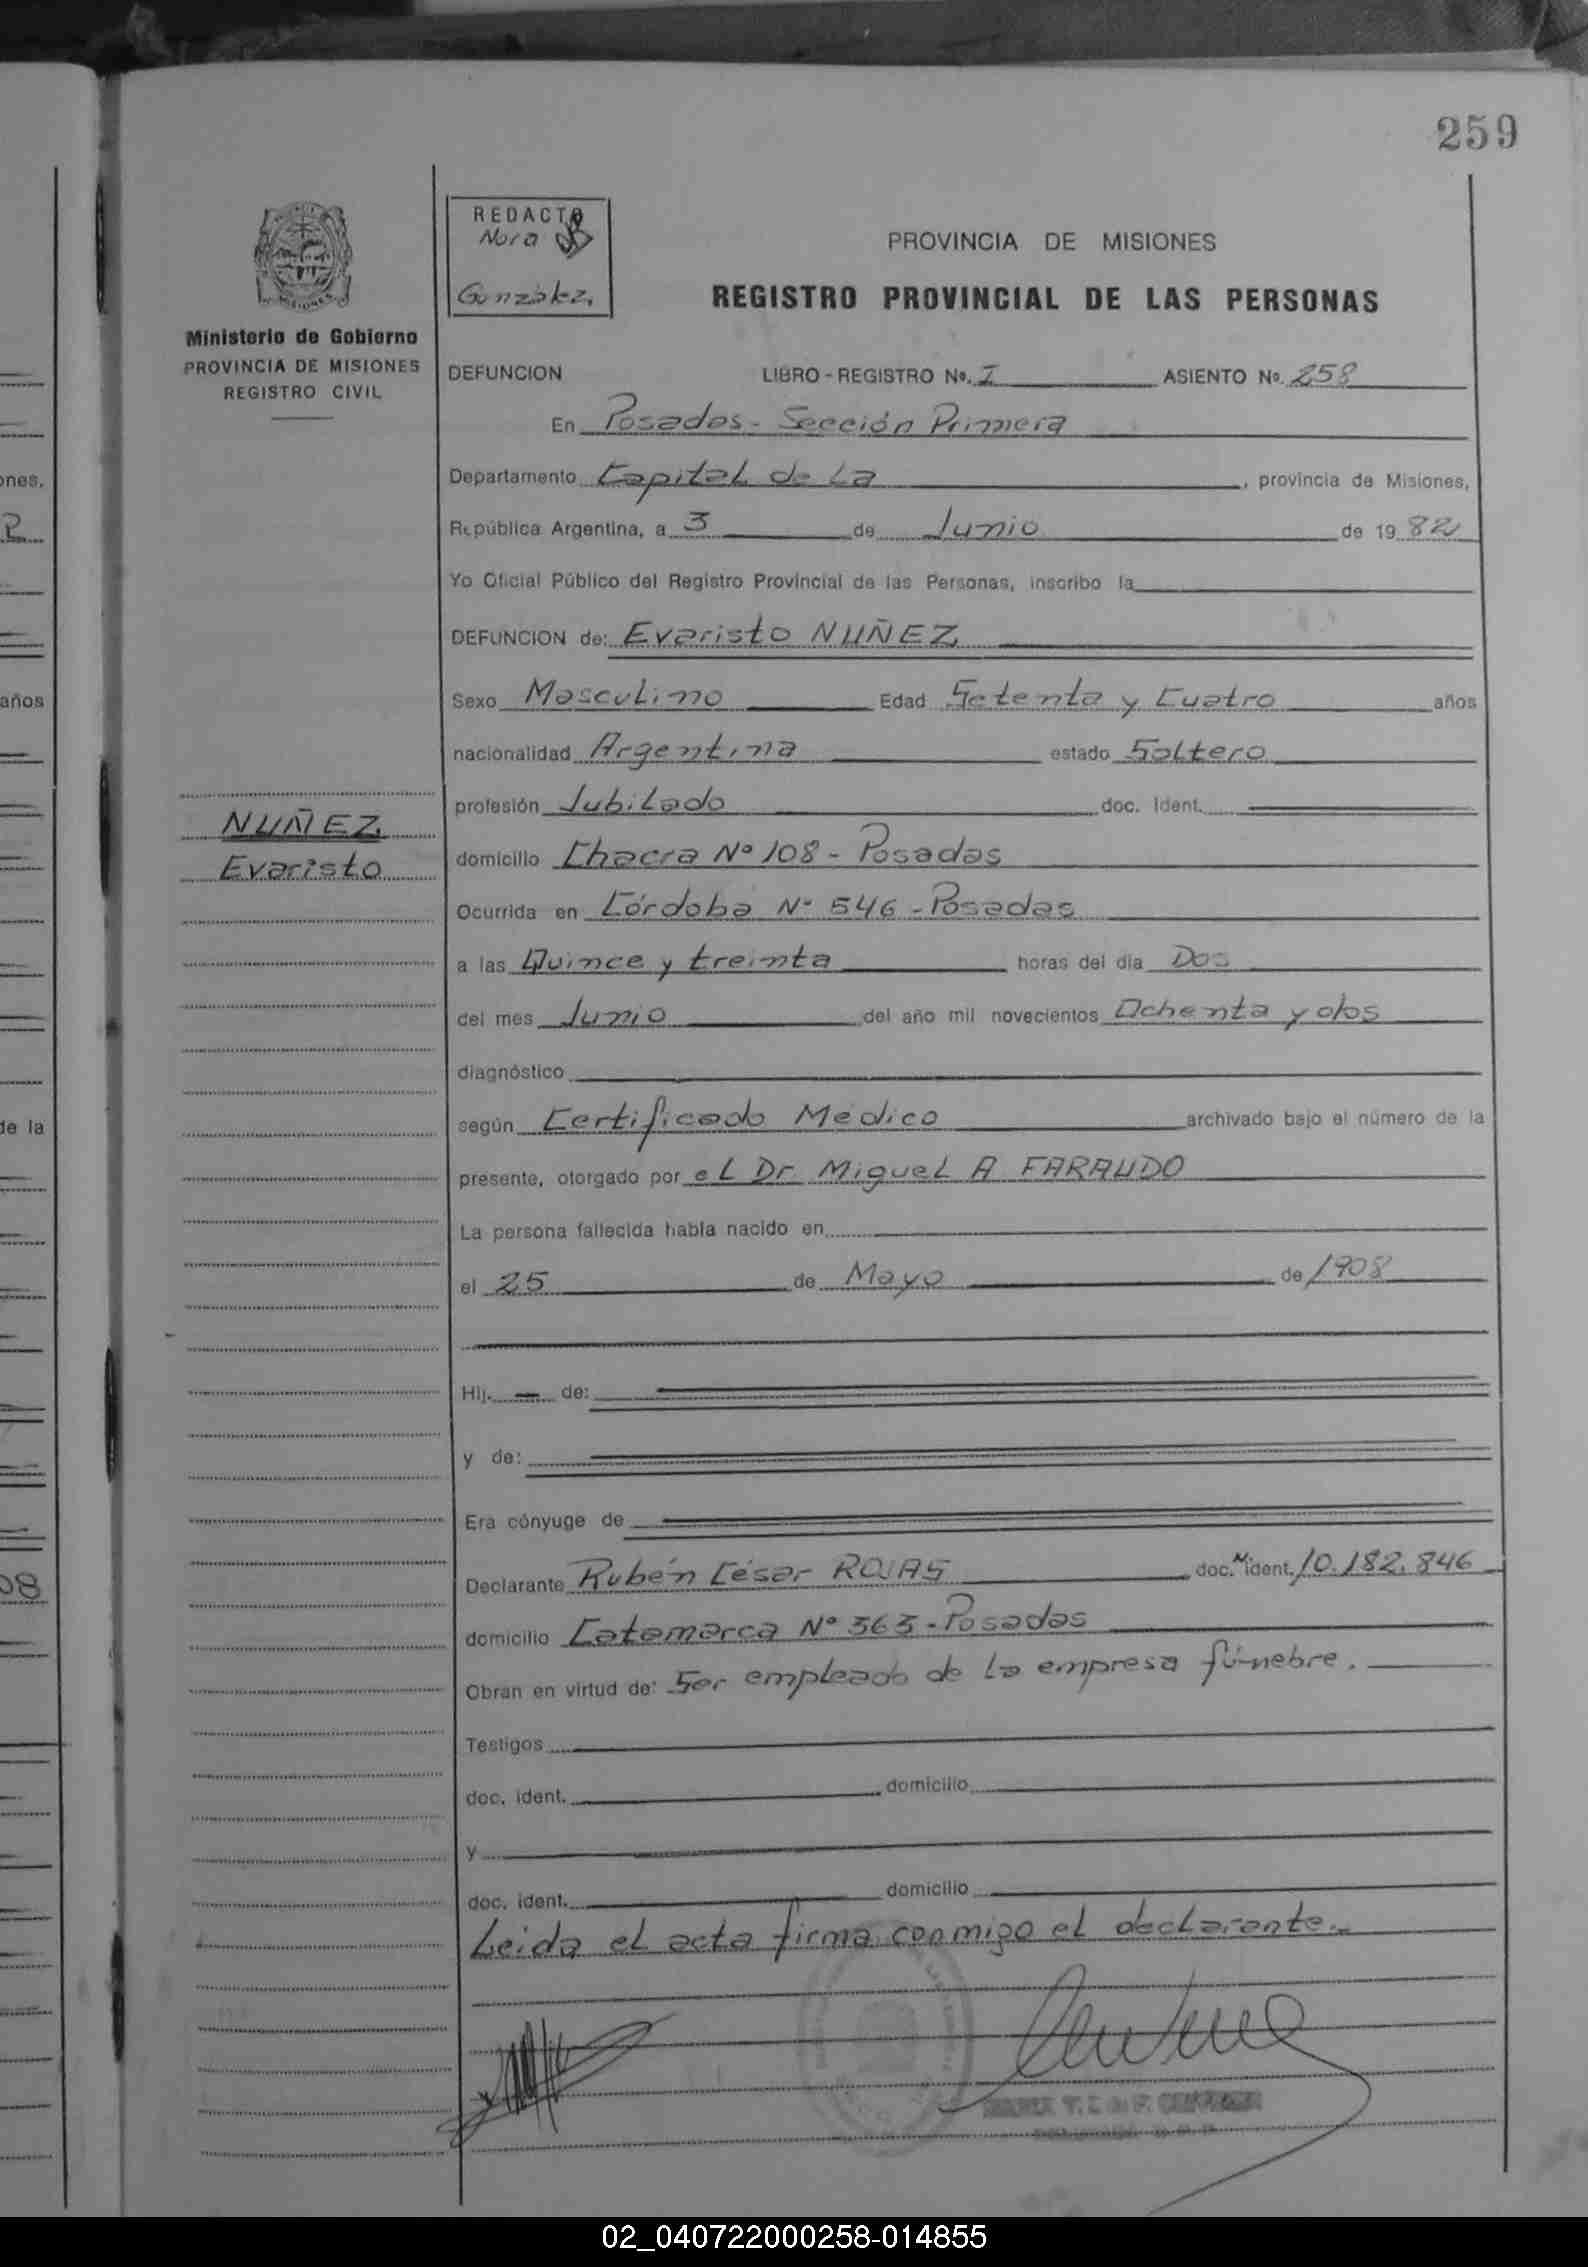 259
REDACTO
Nora
González.
Ministerio de Gobierno
PROVINCIA DE MISIONES
REGISTRO CIVIL
PROVINCIA DE MISIONES
REGISTRO PROVINCIAL DE LAS PERSONAS
DEFUNCION LIBRO - REGISTRO No. I ASIENTO No. 258
En Posadas - Sección Primera
Departamento Capital de La, provincia de Misiones,
República Argentina, a 3 de Junio de 1982
Yo Oficial Público del Registro Provincial de las Personas, inscribo la
DEFUNCION de: Evaristo NUÑEZ
Sexo Masculino Edad Setenta y Cuatro años
nacionalidad Argentina estado Soltero
profesión Jubilado doc. ident.
NUÑEZ
Evaristo
domicilio Chacra Nº 108 - Posadas
Ocurrida en Córdoba Nº 546 - Posadas
a las Quince y treinta horas del día Dos
del mes Junio del año mil novecientos Ochenta y dos
diagnóstico
según Certificado Médico archivado bajo el número de la
presente, otorgado por el Dr. Miguel A FARAUDO
La persona fallecida había nacido en
el 25 de Mayo de 1908
Hij. — de:
y de:
Era cónyuge de
Declarante Rubén César ROJAS doc. Nº ident. 10.182.846
domicilio Catamarca Nº 363 - Posadas
Obran en virtud de: Ser empleado de la empresa fúnebre.
Testigos
doc. ident. domicilio
y
doc. ident. domicilio
Leida el acta firma conmigo el declarante.-
02_040722000258-014855